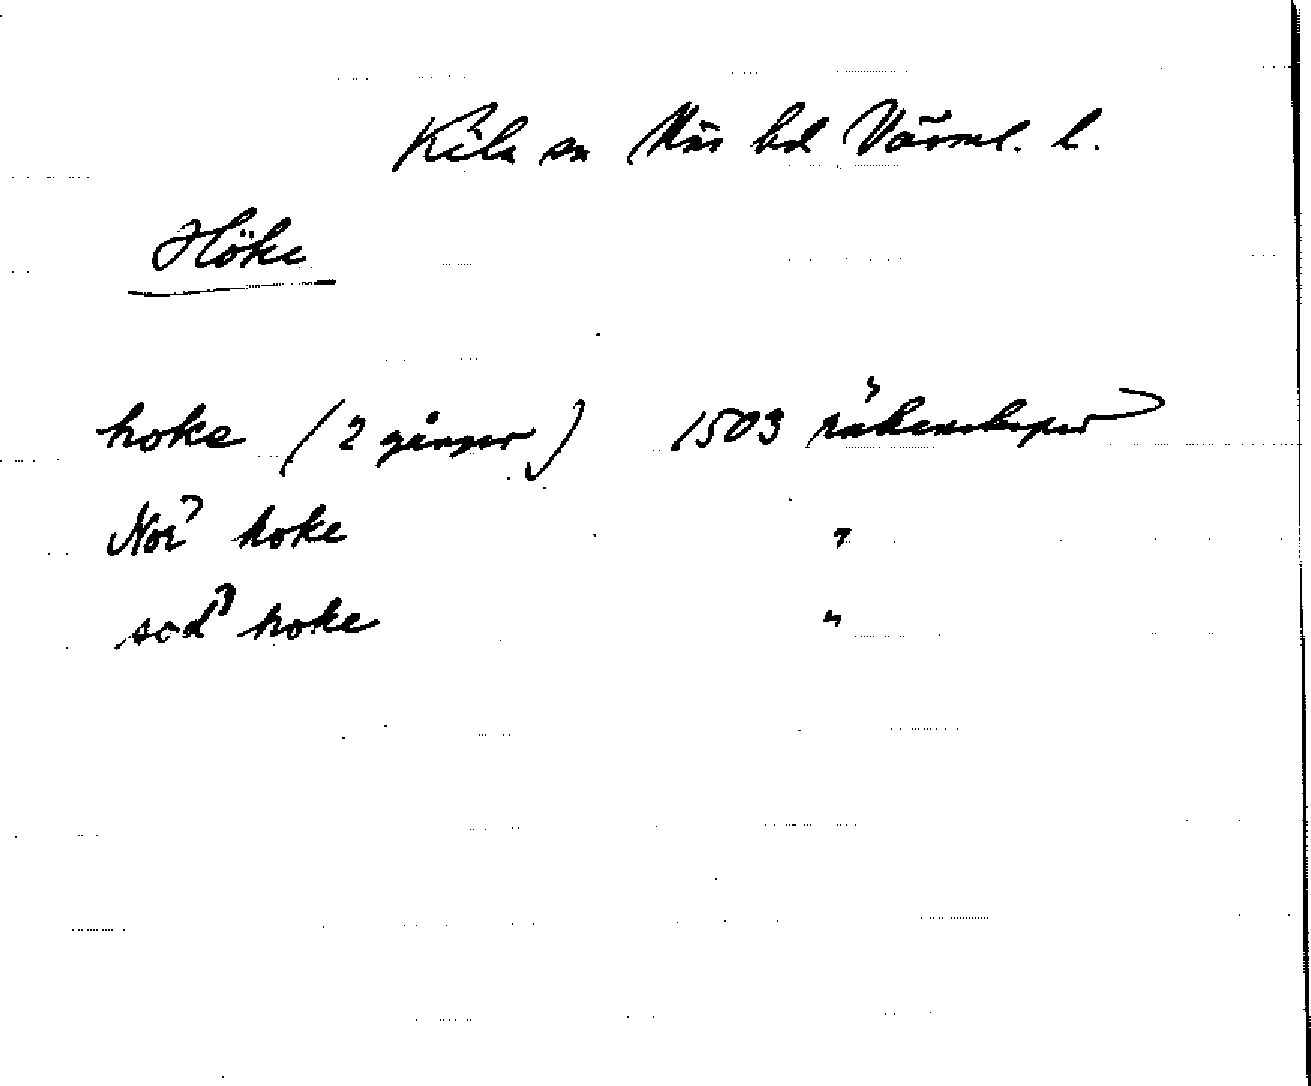 Kila sn Näs hd Värml. l.
Höke
hoke (2 gånger) 1503 räkenskaper
Nor hoke "
sod hoke "